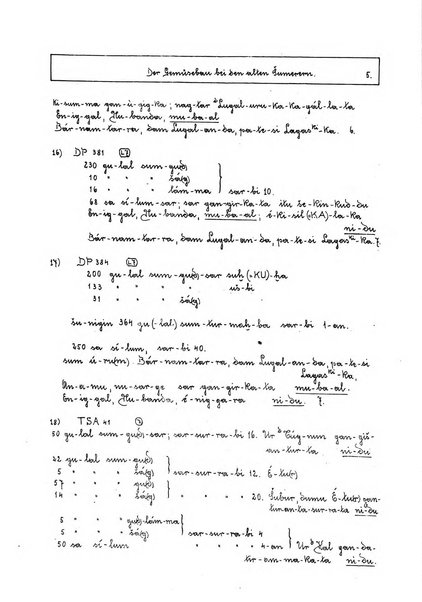 Der Gemüsebau bei den alten Sumerern. 5.
ki-sum-ma gan-ù-gig-ka; nag-tar Lugal-uru-ka-ka-gál-la-ta
En-ig-gal, Nu-banda, mu-ba-al
Bár-nam-tar-ra, dam Lugal-an-da, pa-te-si Lagaš-ki-ka. 6.
16) DP 381
230 gu-lal sum-gu(d)
10 " " šá(g)
16 " " lám-ma } sar-bi 10.
68 sa sí-lum; sar gan-gir-ka-ta itu še-kin-kud-du
En-ig-gal, Nu-banda, mu-ba-al; é-ki-sil(-KA)-la-ka
ni-du
Bár-nam-tar-ra, dam Lugal-an-da, pa-te-si Lagaš-ki-ka. 7.
17) DP 384
200 gu-lal sum-gu(d)-sar suḫ(-KU)-ḫa
133 " " " uš-bi
31 " " šá(g)
šu-nigin 364 gu(-lal) sum-tur-maḫ-ba sar-bi 1-an.
250 sa sí-lum, sar-bi 40.
sum ú-ru(m). Bár-nam-tar-ra, dam Lugal-an-da, pa-te-si
Lagaš-ki-ka,
En-a-mu, nu-sar-ge sar gan-gir-ka-ta mu-ba-al.
En-ig-gal, Nu-banda, é-nig-ga-ra ni-du. 7.
18) TSA 41
50 gu-lal sum-gu(d)-sar; sar-sur-ra-bi 16. Ur gan-giš-
an-tur-ta ni-du
22 gu-lal sum-gu(d)
5 " " šá(g) } sar-sur-ra-bi 12. É-tur)
57 " " gu(d)
14 " " šá(g) } " " " 20. Šubur, dumu É-tur) gan-
ur-an-ta-sur-ra-ta ni-du
5 " " gu(d)-lám-ma
5 " " šá(g) } sar-sur-ra-bi 4
50 sa sí-lum " " " 4-an } Ur gan-da-
tir-am-ma-ka-ta ni-du.